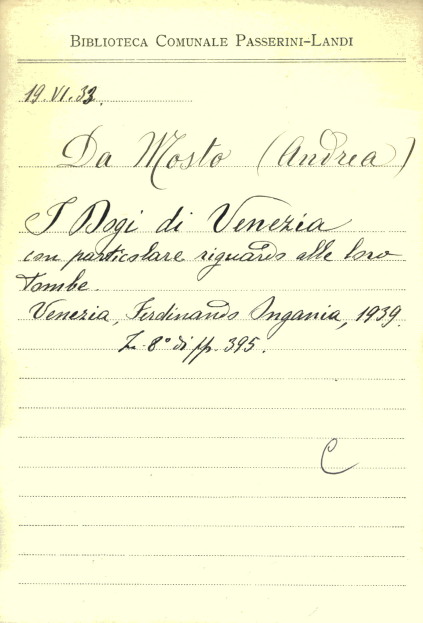 BIBLIOTECA COMUNALE PASSERINI-LANDI
19.VI.33.
Da Mosto (Andrea)
I Dogi di Venezia
con particolare riguardo alle loro
tombe.
Venezia, Ferdinando Ongania, 1939.
In 8° di pp. 395.
C